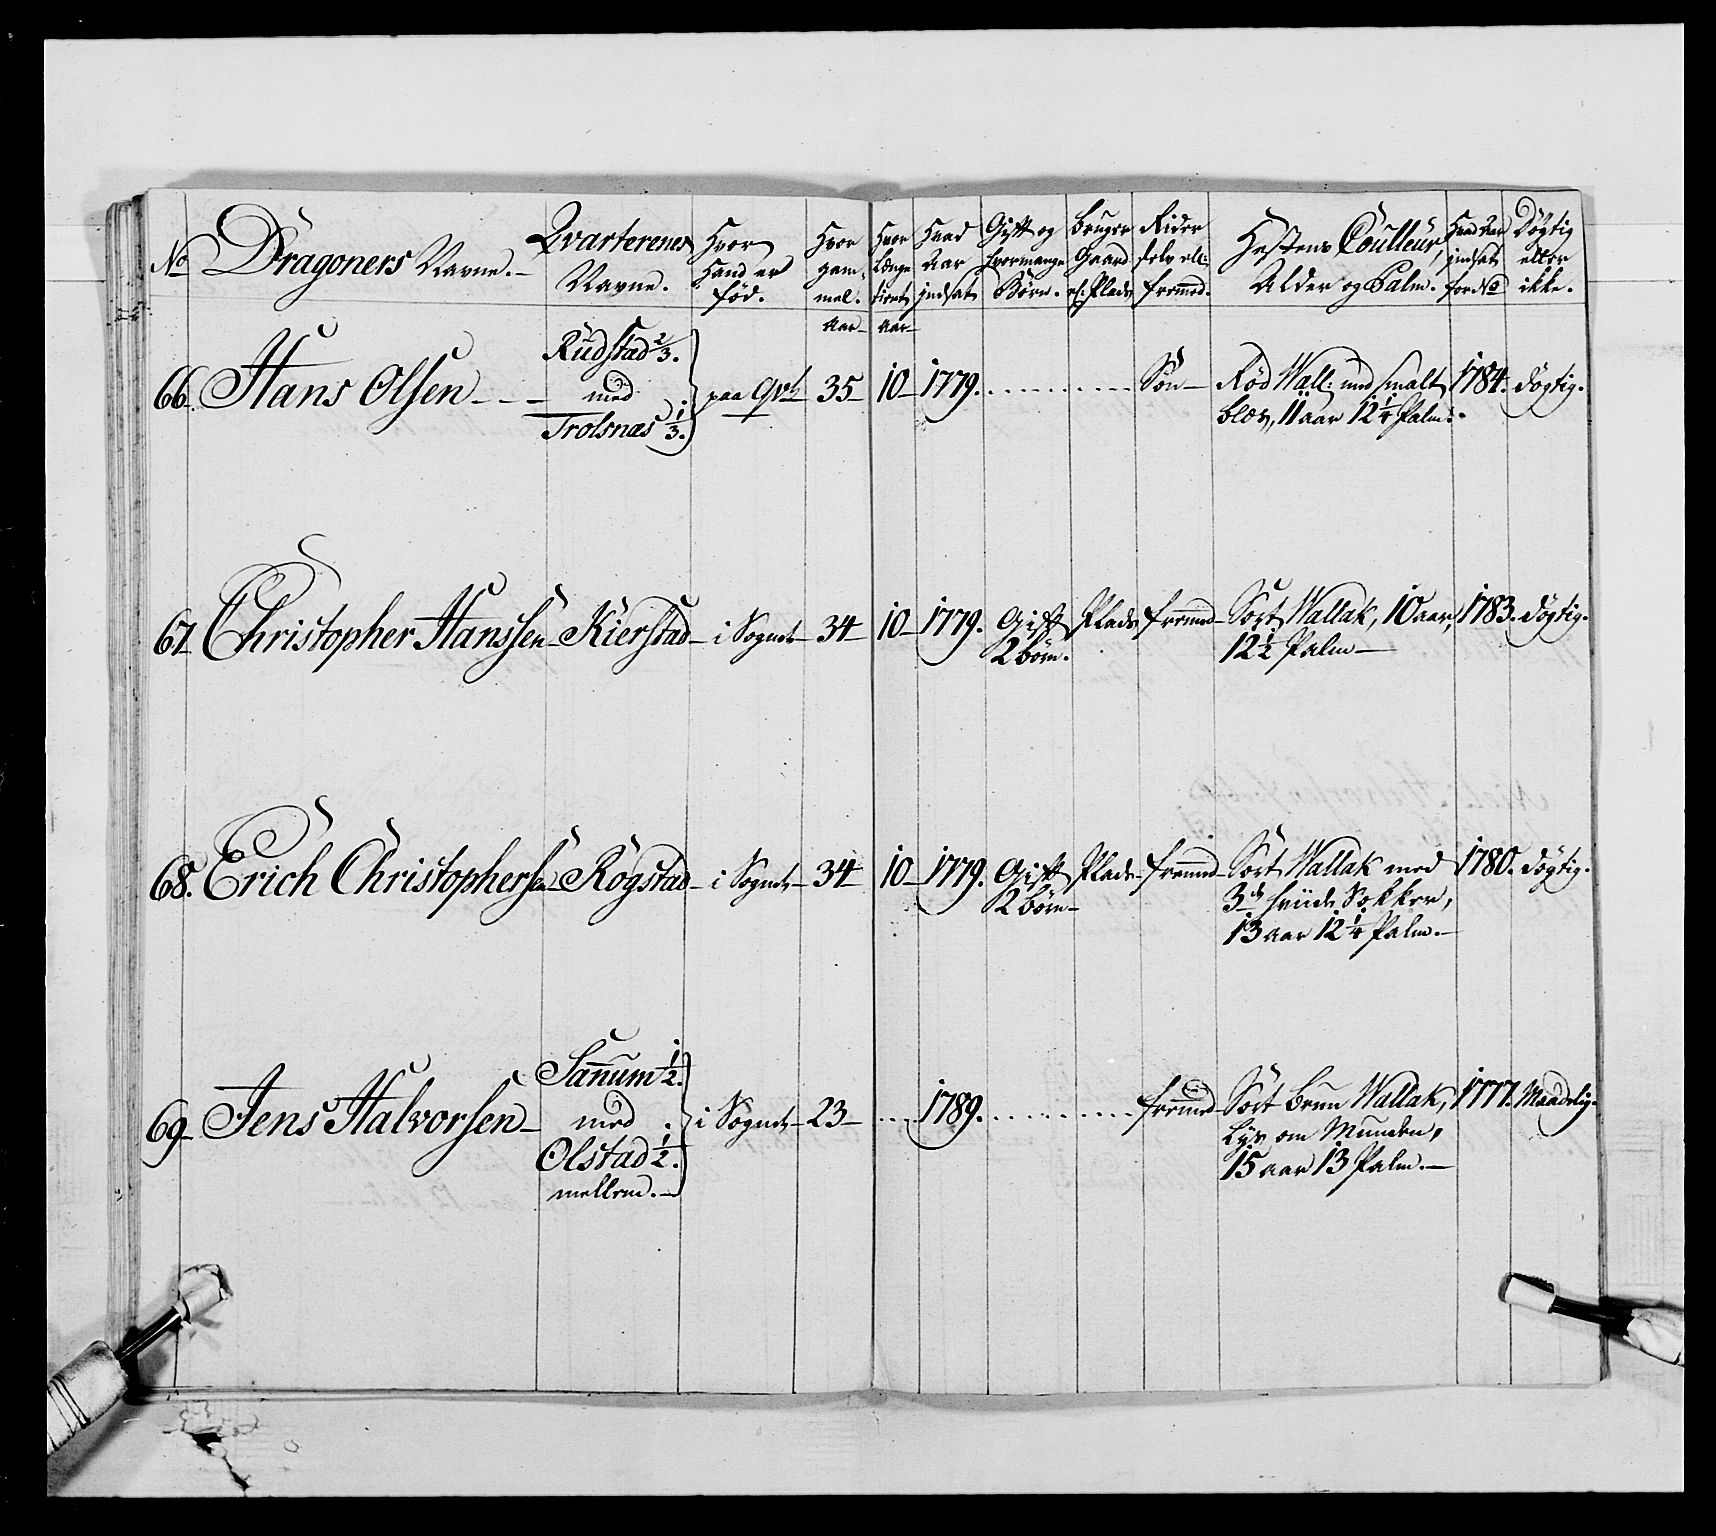 No Dragoners Navne. Qvarterenes Navne. Hvor Hand er fød. Hvor gammel. Hvor Længe tient Hvad Aar indsat Gift og hvormange Børn. Bruger Gaard el: Plads Rider selv ell: fremed. Hestens Coulleur, Alder og Palm. Hvad Aar indsat Døgtig eller ikke.
Aar Aar
66. Hans Olsen Rudstad 2/3. med Trolsnæs 1/3. paa Qvt 35 10 1779. Søn Rød Wall: med smalt 1784. døgtig.
11 aar 12 1/4 Palm.
67 Christopher Hanssen Kierstad i Sognet 34 10 1779. Gift Plads fremed Sort Wallak, 10 aar, 1783. døgtig.
2 børn. 12 1/2 Palm
68. Erich Christophersen Rogstad i Sognet 34 10 1779. Gift Plads fremed Sort Wallak med 1780. døgtig.
2 børn 3de hviide Sokker,
13 aar 12 1/4 Palm.
69 Jens Halvorsen Sanum 1/2. med Olstad 1/2. mellem. i Sognet 23 1789. fremed Sort brun Wallak, 1777. Maadelig.
Lys om Munden,
15 aar 13 Palm.